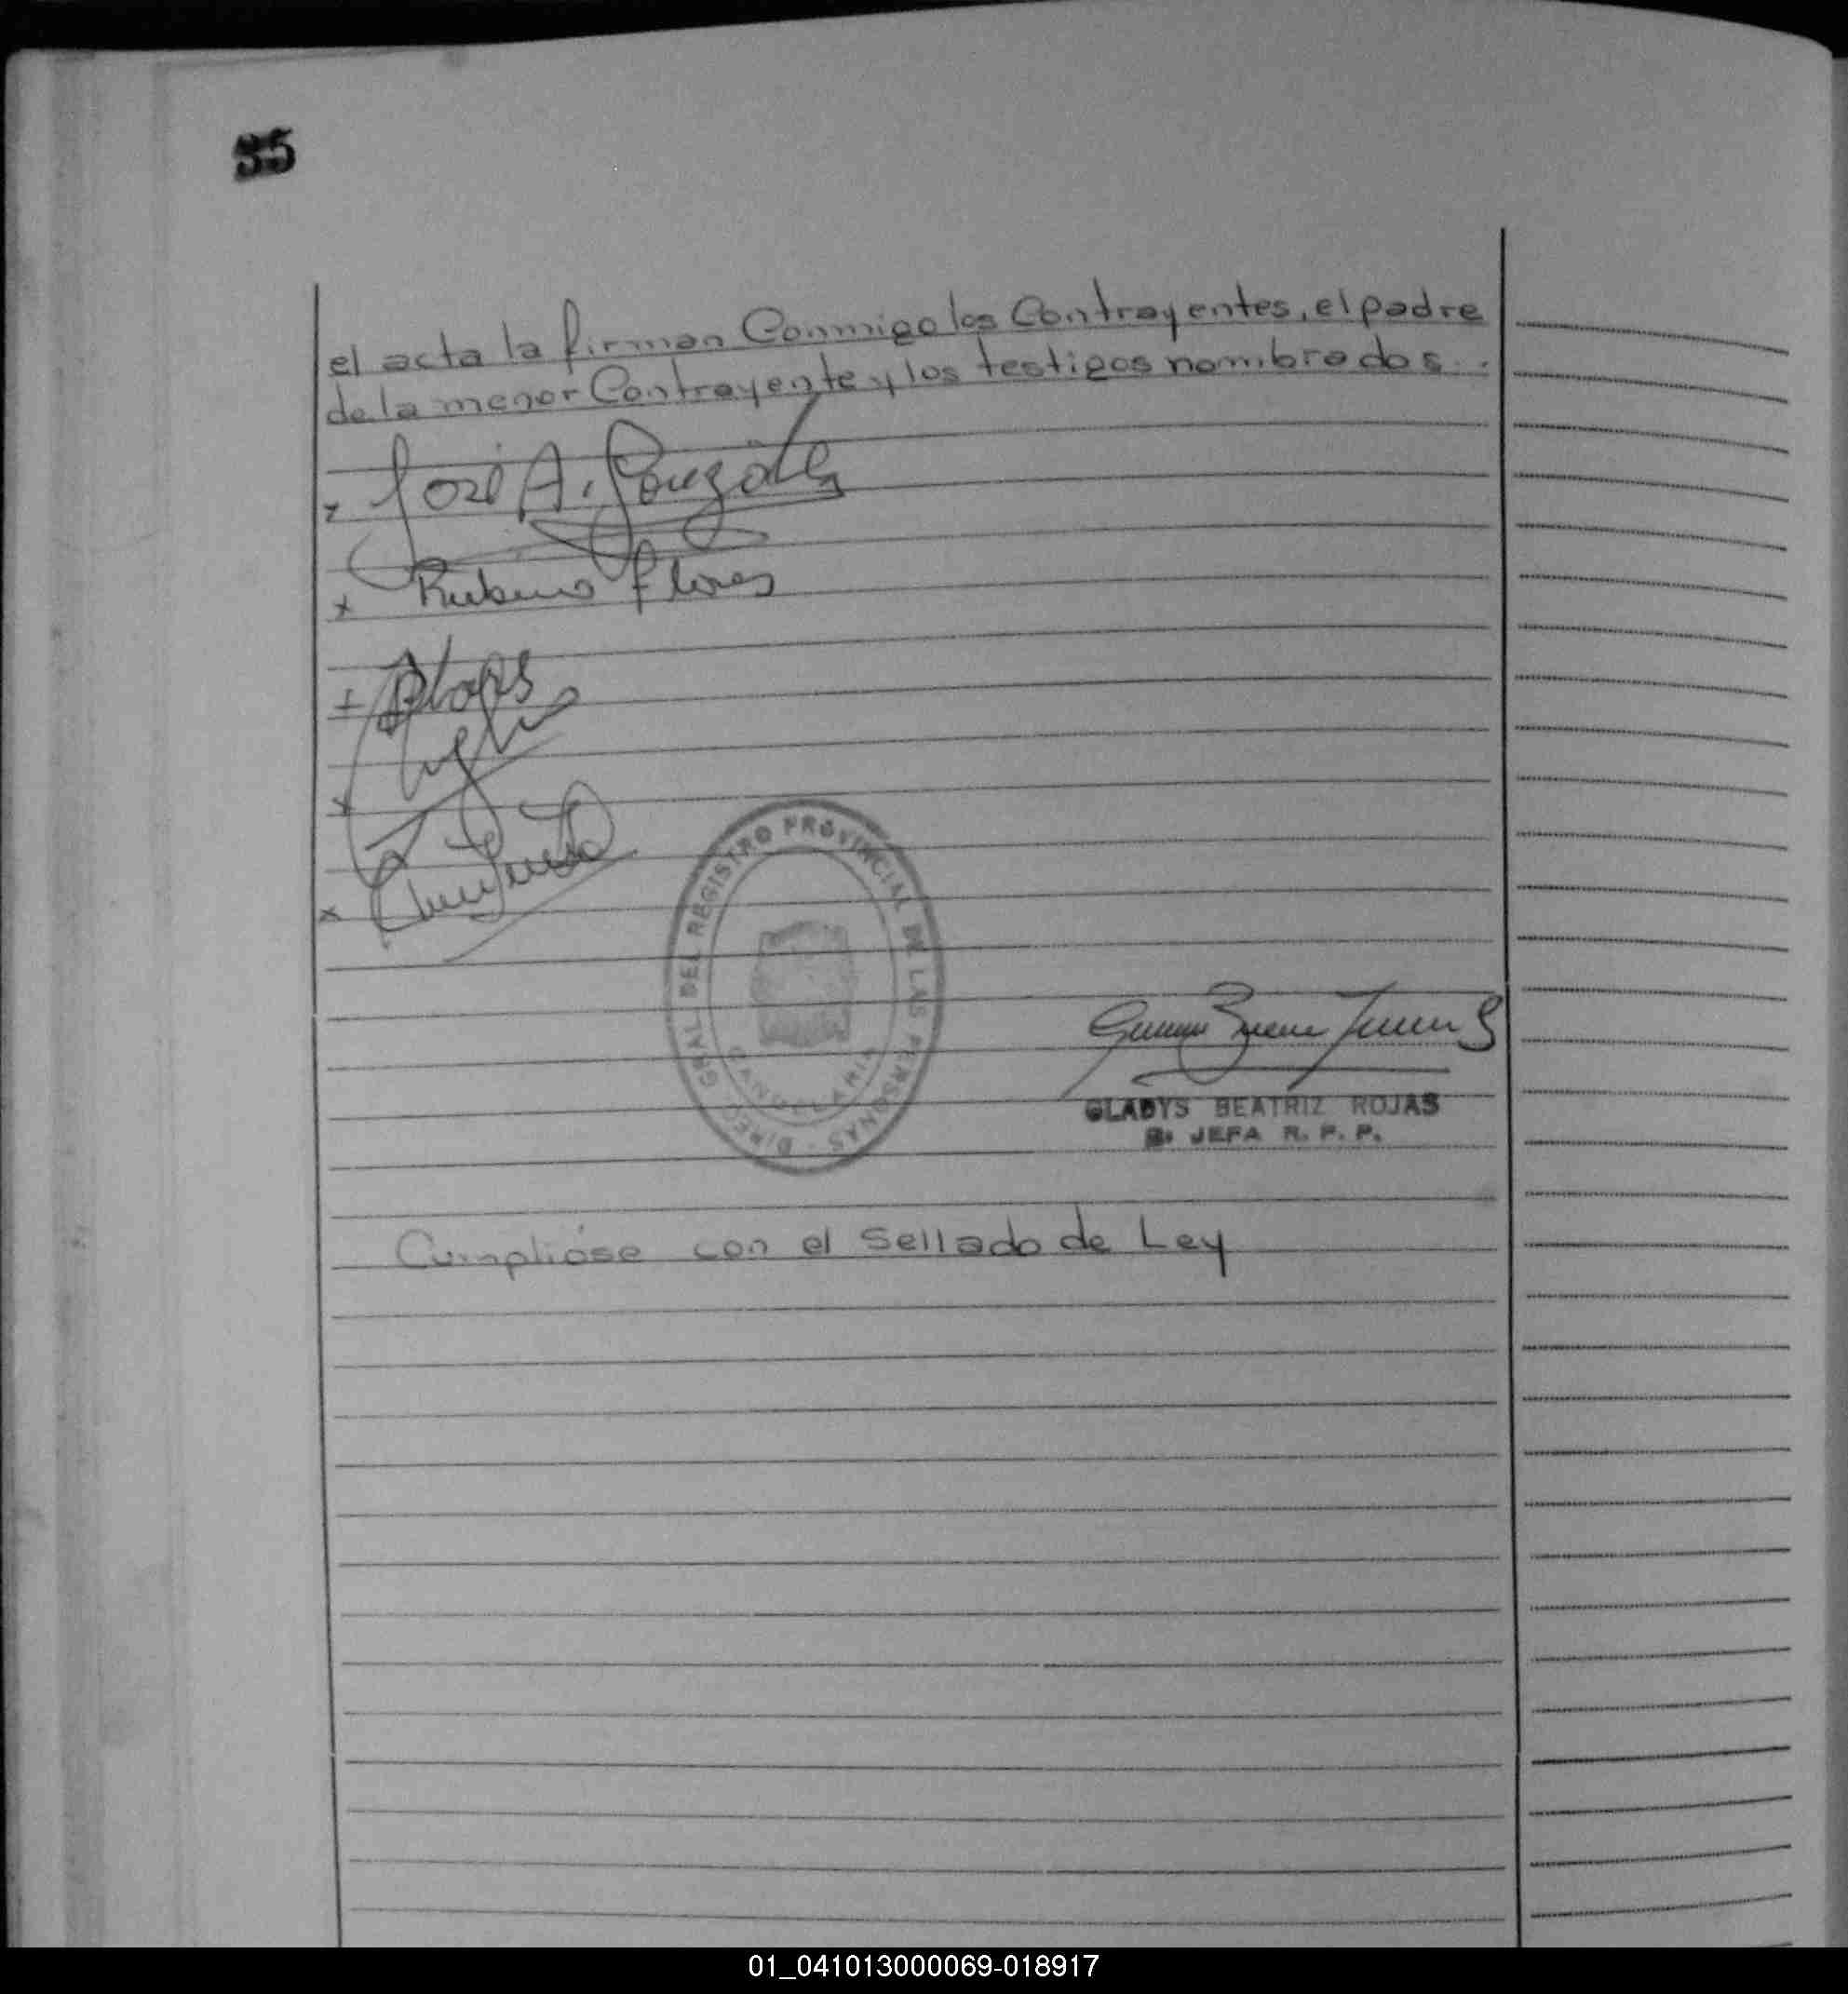 35
el acta la firman Conmigo los Contrayentes, el padre
de la menor Contrayente y los testigos nombrados.
x José A. González
x Rubens Flores
x
x
x
DIREC. GRAL. DEL REGISTRO PROVINCIAL DE LAS PERSONAS
CANDELARIA
GLADYS BEATRIZ ROJAS
JEFA R. P. P.
Cumplióse con el Sellado de Ley
01_041013000069-018917